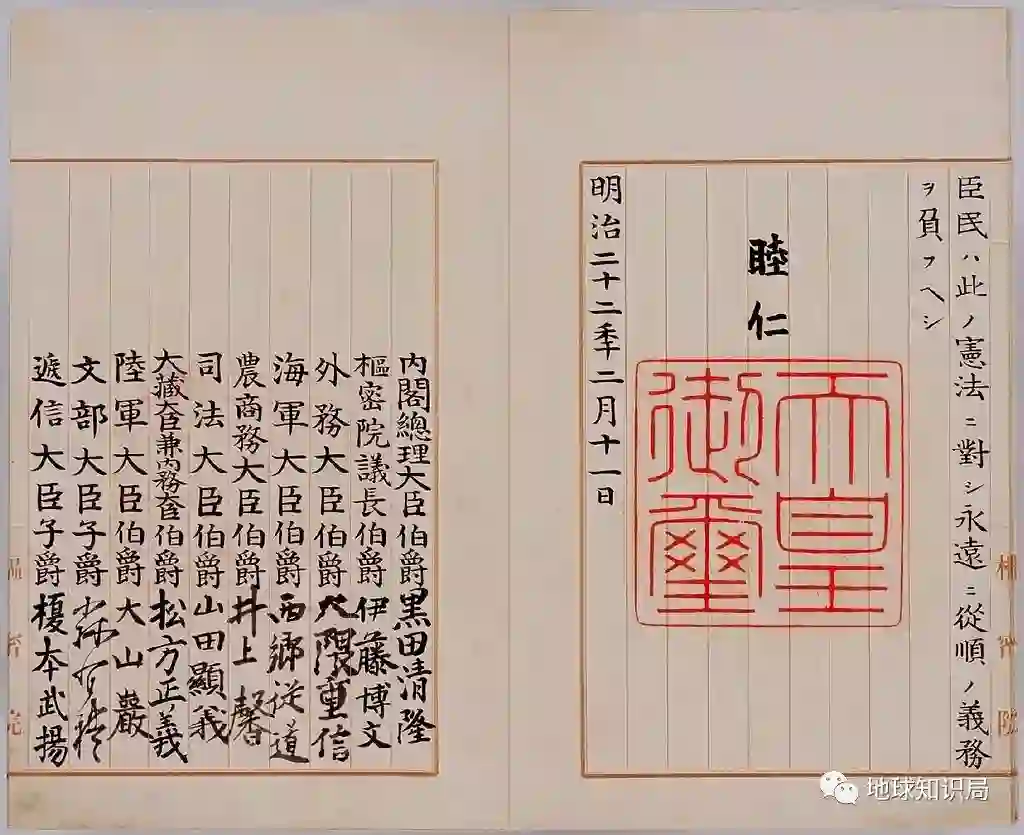 臣民ハ此ノ憲法ニ對シ永遠ニ從順ノ義務
ヲ負フヘシ
睦仁
天皇
御璽
明治二十二年二月十一日
内閣總理大臣伯爵黒田清隆
樞密院議長伯爵伊藤博文
外務大臣伯爵大隈重信
海軍大臣伯爵西郷従道
農商務大臣伯爵井上馨
司法大臣伯爵山田顯義
大藏大臣兼内務大臣伯爵松方正義
陸軍大臣伯爵大山巌
文部大臣子爵森有礼
遞信大臣子爵榎本武揚
樞密院
樞密院
地球知识局